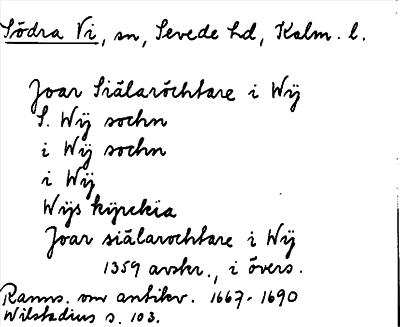 Södra Vi, sn, Sevede hd, Kalm. l.
Joar Siälaröchtare i Wÿ
S. Wÿ sochn
i Wÿ sochn
i Wÿ
Wÿs kÿrckia
Joar siälarochtare i Wÿ
1359 avskr., i övers.
Ranns. om antikv. 1667-1690
Wilstadius s. 103.